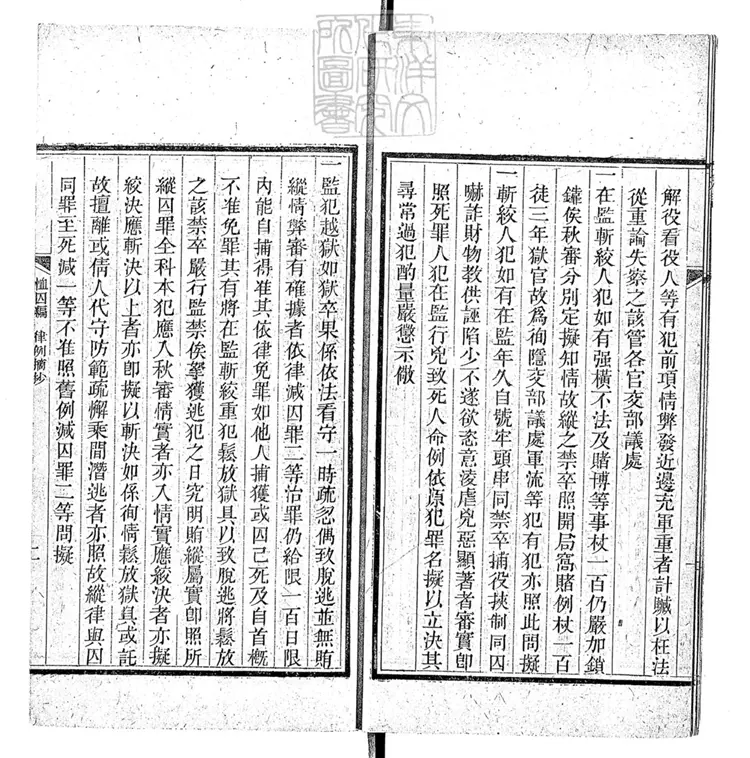 東洋文
化研究
所圖書
解役看役人等有犯前項情弊發近邊充軍重者計贓以枉法
從重論失察之該管各官交部議處
一在監斬絞人犯如有强橫不法及賭博等事杖一百仍嚴加鎖
鐳俟秋審分別定擬知情故縱之禁卒照開局窩賭例杖一百
徒三年獄官故爲徇隱交部議處軍流等犯有犯亦照此問擬
一斬絞人犯如有在監年久自號牢頭串同禁卒捕役挾制同囚
嚇詐財物教供誣陷少不遂欲恣意淩虐兇惡顯著者審實卽
照死罪人犯在監行兇致死人命例依原犯罪名擬以立決其
尋常過犯酌量嚴懲示儆
一監犯越獄如獄卒果係依法看守一時疏忽偶致脫逃並無賄
縱情弊審有確據者依律減囚罪二等治罪仍給限一百日限
內能自捕得准其依律免罪如他人捕獲或囚已死及自首概
不准免罪其有將在監斬絞重犯鬆放獄具以致脫逃將鬆放
之該禁卒嚴行監禁俟拏獲逃犯之日究明賄縱屬實卽照所
縱囚罪全科本犯應入秋審情實者亦入情實應絞決者亦擬
絞決應斬決以上者亦卽擬以斬決如係徇情鬆放獄具或託
故擅離或倩人代守防範疏懈乘間潛逃者亦照故縱律與囚
同罪至死減一等不准照舊例減囚罪二等問擬
恤囚編 律例摘鈔